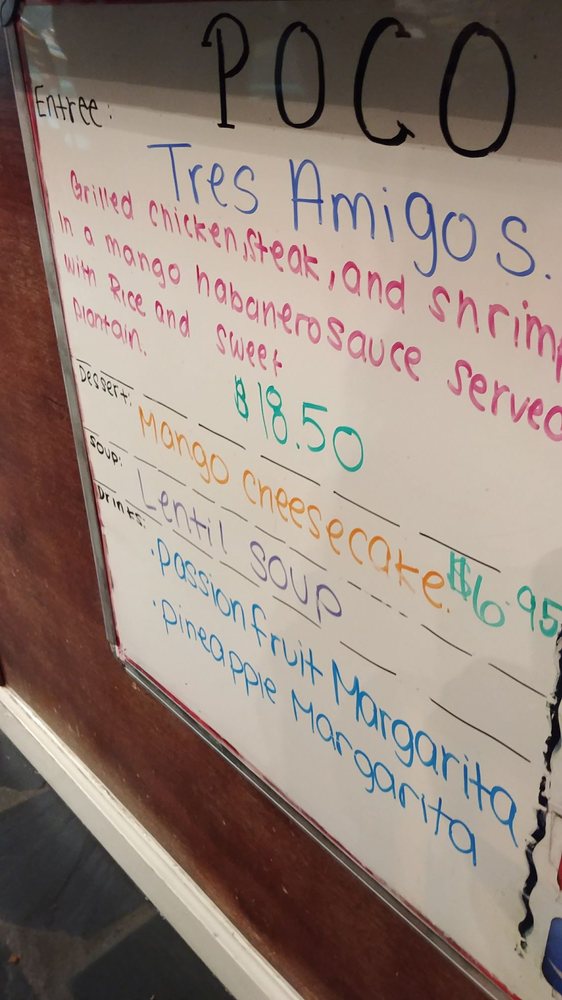 POCO
Entree:
Tres Amigos.
Grilled chicken, steak, and shrimp
In a mango habanero sauce served
with Rice and sweet
plantain.
$18.50
Dessert: Mango cheesecake. $6.95
Soup: Lentil soup
Drinks:
·passion fruit Margarita
·pineapple Margarita